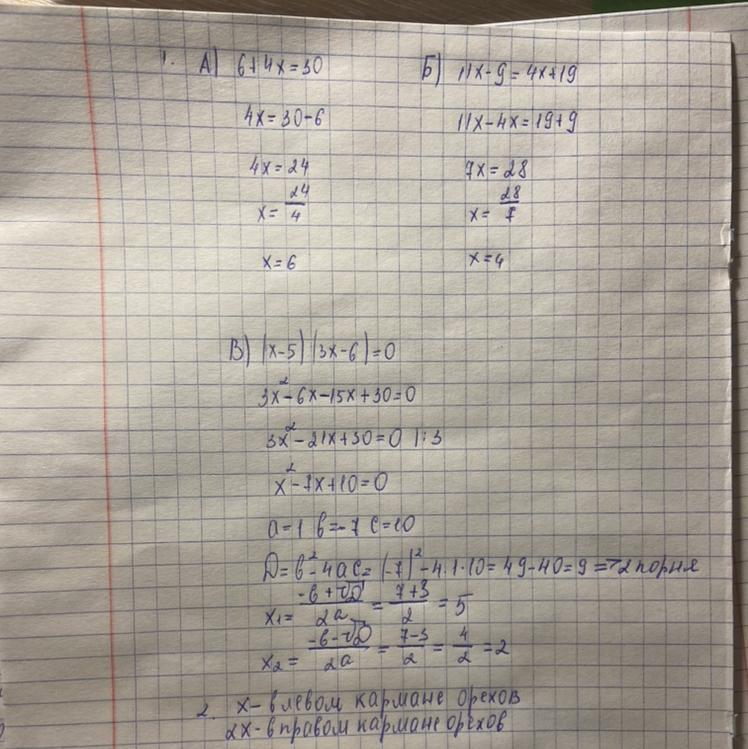 1. А) 6+4x=30 Б) 11x-9=4x+19
4x=30-6 11x-4x=19+9
4x=24 7x=28
x=24/4 x=28/7
x=6 x=4
В) (x-5)(3x-6)=0
3x²-6x-15x+30=0
3x²-21x+30=0 |:3
x²-7x+10=0
a=1 b=-7 c=10
D=b²-4ac=(-7)²-4·1·10=49-40=9=>2 корня
x₁=(-b+√D)/2a=(7+3)/2=5
x₂=(-b-√D)/2a=(7-3)/2=4/2=2
2. x-в левом кармане орехов
2x-в правом кармане орехов